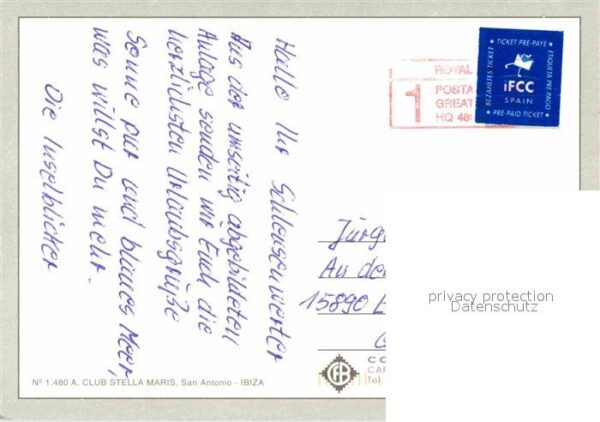 Hallo Ihr Schleusenwärter
Aus der umseitig abgebildeten
Anlage senden wir Euch die
herzlichsten Urlaubsgrüße
Sonne pur und blaues Meer,
was willst Du mehr.
Die Inselblicker
ROYAL
1
POSTA
GREAT
HQ 48
TICKET PRE-PAYE
BEZAHLTES TICKET
ETIQUETA PRE PAGO
iFCC
SPAIN
PRE-PAID TICKET
Jürg
An de
15890
privacy protection
Datenschutz
CO
CAR
Tel
Nº 1.480 A, CLUB STELLA MARIS, San Antonio - IBIZA